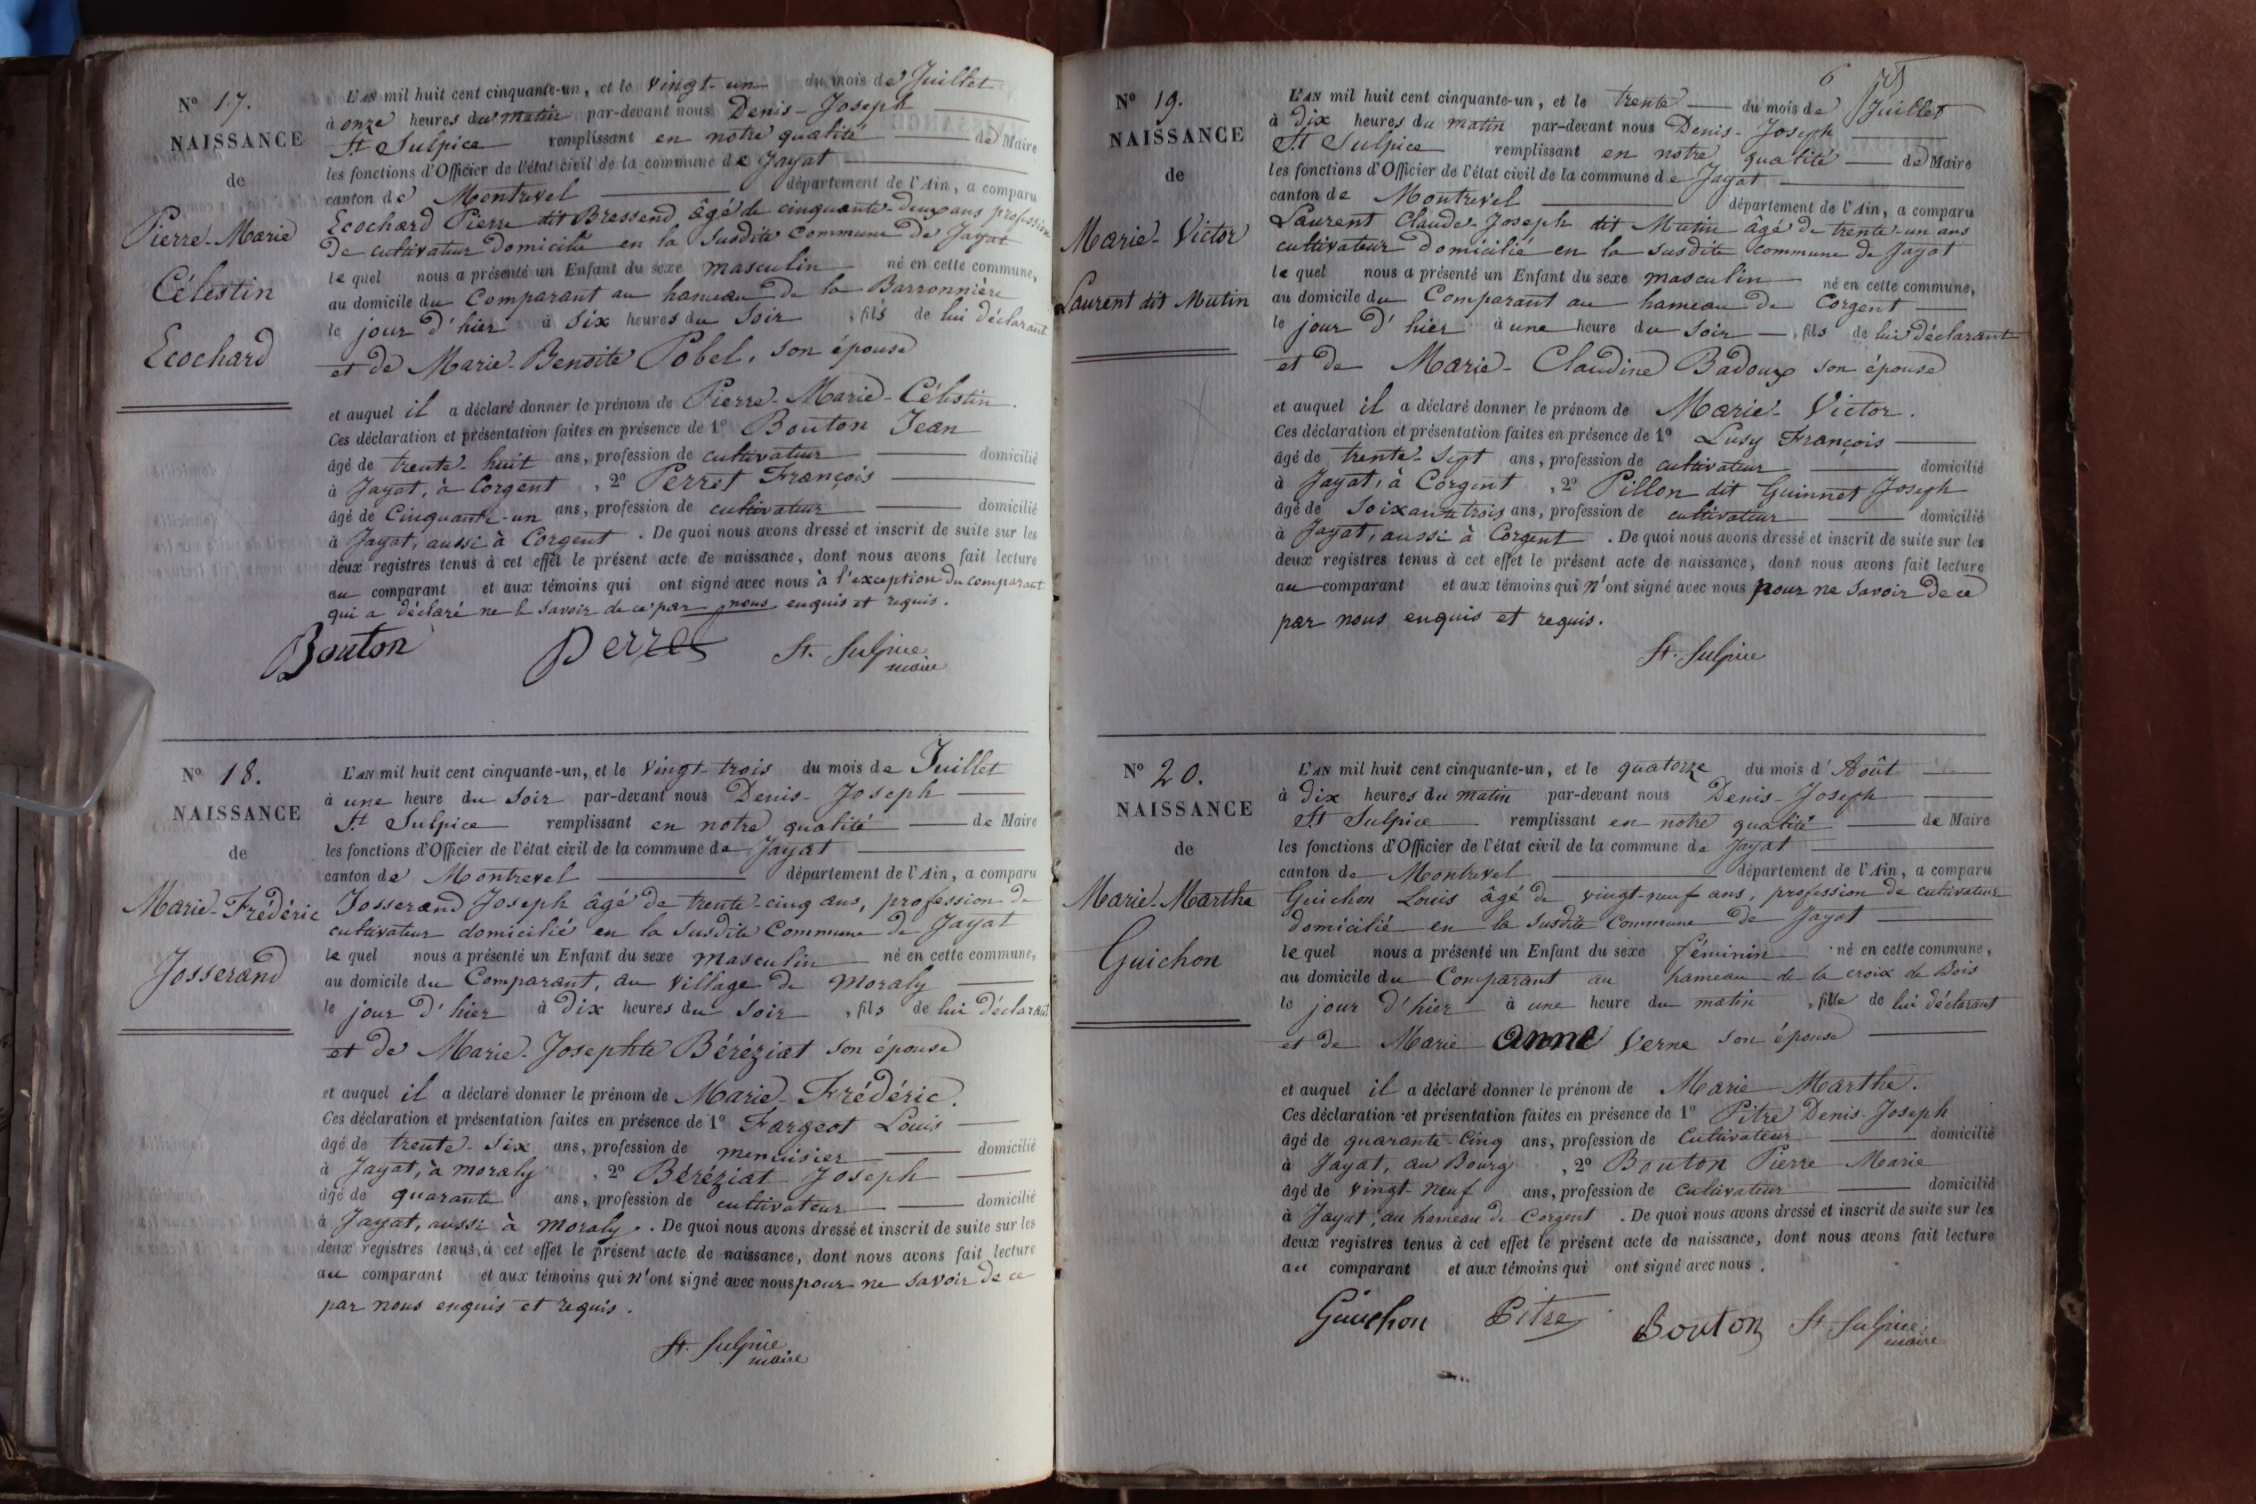 N° 17.
NAISSANCE
de
Pierre-Marie
Célestin
Ecochard
L'AN mil huit cent cinquante-un, et le vingt-un du mois de Juillet
à onze heures du matin par-devant nous Denis-Joseph
St Sulpice remplissant en notre qualité de Maire
les fonctions d'Officier de l'état civil de la commune de Jayat
canton de Montrevel département de l'Ain, a comparu
Ecochard Pierre dit Bressend âgé de cinquante-deux ans profession
de cultivateur domicilié en la susdite commune de Jayat
lequel nous a présenté un Enfant du sexe masculin né en cette commune,
au domicile du comparant au hameau de la Barronnière
le jour d'hier à six heures du soir, fils de lui déclarant
et de Marie-Benoite Pobel, son épouse
et auquel il a déclaré donner le prénom de Pierre-Marie-Célestin.
Ces déclaration et présentation faites en présence de 1° Bouton Jean
âgé de trente-huit ans, profession de cultivateur domicilié
à Jayat, à Corgent, 2° Perret François
âgé de Cinquante-un ans, profession de cultivateur domicilié
à Jayat, aussi à Corgent. De quoi nous avons dressé et inscrit de suite sur les
deux registres tenus à cet effet le présent acte de naissance, dont nous avons fait lecture
au comparant et aux témoins qui ont signé avec nous à l'exception du comparant
qui a déclaré ne le savoir de ce par nous enquis et requis.
Bouton Perret St. Sulpice
maire
N° 18.
NAISSANCE
de
Marie-Frédéric
Josserand
L'AN mil huit cent cinquante-un, et le vingt-trois du mois de Juillet
à une heure du soir par-devant nous Denis-Joseph
St Sulpice remplissant en notre qualité de Maire
les fonctions d'Officier de l'état civil de la commune de Jayat
canton de Montrevel département de l'Ain, a comparu
Josserand Joseph âgé de trente-cinq ans, profession de
cultivateur domicilié en la susdite Commune de Jayat
lequel nous a présenté un Enfant du sexe masculin né en cette commune,
au domicile du Comparant, au village de Moraly
le jour d'hier à dix heures du soir, fils de lui déclarant
et de Marie-Josephte Béréziat son épouse
et auquel il a déclaré donner le prénom de Marie-Frédéric.
Ces déclaration et présentation faites en présence de 1° Fargeot Louis
âgé de trente-six ans, profession de menuisier domicilié
à Jayat, à moraly, 2° Béréziat Joseph
âgé de quarante ans, profession de cultivateur domicilié
à Jayat, aussi à moraly. De quoi nous avons dressé et inscrit de suite sur les
deux registres tenus à cet effet le présent acte de naissance, dont nous avons fait lecture
au comparant et aux témoins qui n'ont signé avec nous pour ne savoir de ce
par nous enquis et requis.
St. Sulpice
maire
6
N° 19.
NAISSANCE
de
Marie-Victor
Laurent dit Mutin
L'AN mil huit cent cinquante-un, et le trente du mois de Juillet
à dix heures du matin par-devant nous Denis-Joseph
St Sulpice remplissant en notre qualité de Maire
les fonctions d'Officier de l'état civil de la commune de Jayat
canton de Montrevel département de l'Ain, a comparu
Laurent Claude-Joseph dit Mutin âgé de trente-un ans
cultivateur domicilié en la susdite commune de Jayat
lequel nous a présenté un Enfant du sexe masculin né en cette commune,
au domicile du Comparant au hameau de Corgent
le jour d'hier à une heure du soir, fils de lui déclarant
et de Marie-Claudine Badoux son épouse
et auquel il a déclaré donner le prénom de Marie-Victor.
Ces déclaration et présentation faites en présence de 1° Lusy François
âgé de trente-sept ans, profession de cultivateur domicilié
à Jayat, à Corgent, 2° Pillon dit Guinnet Joseph
âgé de soixante trois ans, profession de cultivateur domicilié
à Jayat, aussi à Corgent. De quoi nous avons dressé et inscrit de suite sur les
deux registres tenus à cet effet le présent acte de naissance, dont nous avons fait lecture
au comparant et aux témoins qui n'ont signé avec nous pour ne savoir de ce
par nous enquis et requis.
St. Sulpice
N° 20.
NAISSANCE
de
Marie-Marthe
Guichon
L'AN mil huit cent cinquante-un, et le quatorze du mois d'Août
à dix heures du matin par-devant nous Denis-Joseph
St Sulpice remplissant en notre qualité de Maire
les fonctions d'Officier de l'état civil de la commune de Jayat
canton de Montrevel département de l'Ain, a comparu
Guichon Louis âgé de vingt-neuf ans, profession de cultivateur
domicilié en la susdite Commune de Jayat
lequel nous a présenté un Enfant du sexe féminin né en cette commune,
au domicile du Comparant au hameau de la croix de Bois
le jour d'hier à une heure du matin, fille de lui déclarant
et de Marie anne Verne son épouse
et auquel il a déclaré donner le prénom de Marie Marthe.
Ces déclaration et présentation faites en présence de 1° Pitre Denis-Joseph
âgé de quarante-cinq ans, profession de Cultivateur domicilié
à Jayat, au Bourg, 2° Bouton Pierre Marie
âgé de vingt-neuf ans, profession de cultivateur domicilié
à Jayat, au hameau de Corgent. De quoi nous avons dressé et inscrit de suite sur les
deux registres tenus à cet effet le présent acte de naissance, dont nous avons fait lecture
au comparant et aux témoins qui ont signé avec nous.
Guichon Pitre Bouton St Sulpice
maire